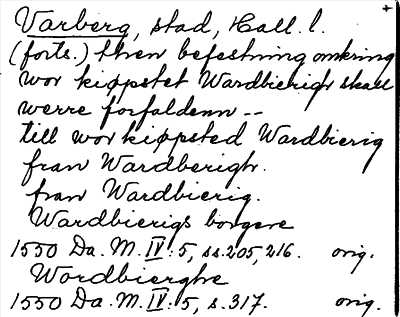 Varberg, stad, Hall. l. +
(forts.) then befestning omkring
wor kiøpstet Wardbierigh skall
werre forfaldenn --
till wor kiøpsted Wardbierig
fran Wardberigh.
fran Wardbierig.
Wardbierigs borgere
1550 Da. M. IV: 5, ss. 205, 216. orig.
Wordbierghe
1550 Da. M. IV: 5, s. 317. orig.